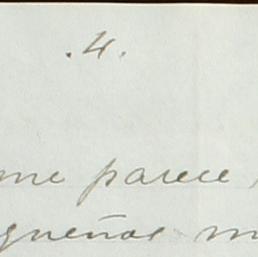 .4.
me parece,
queños m